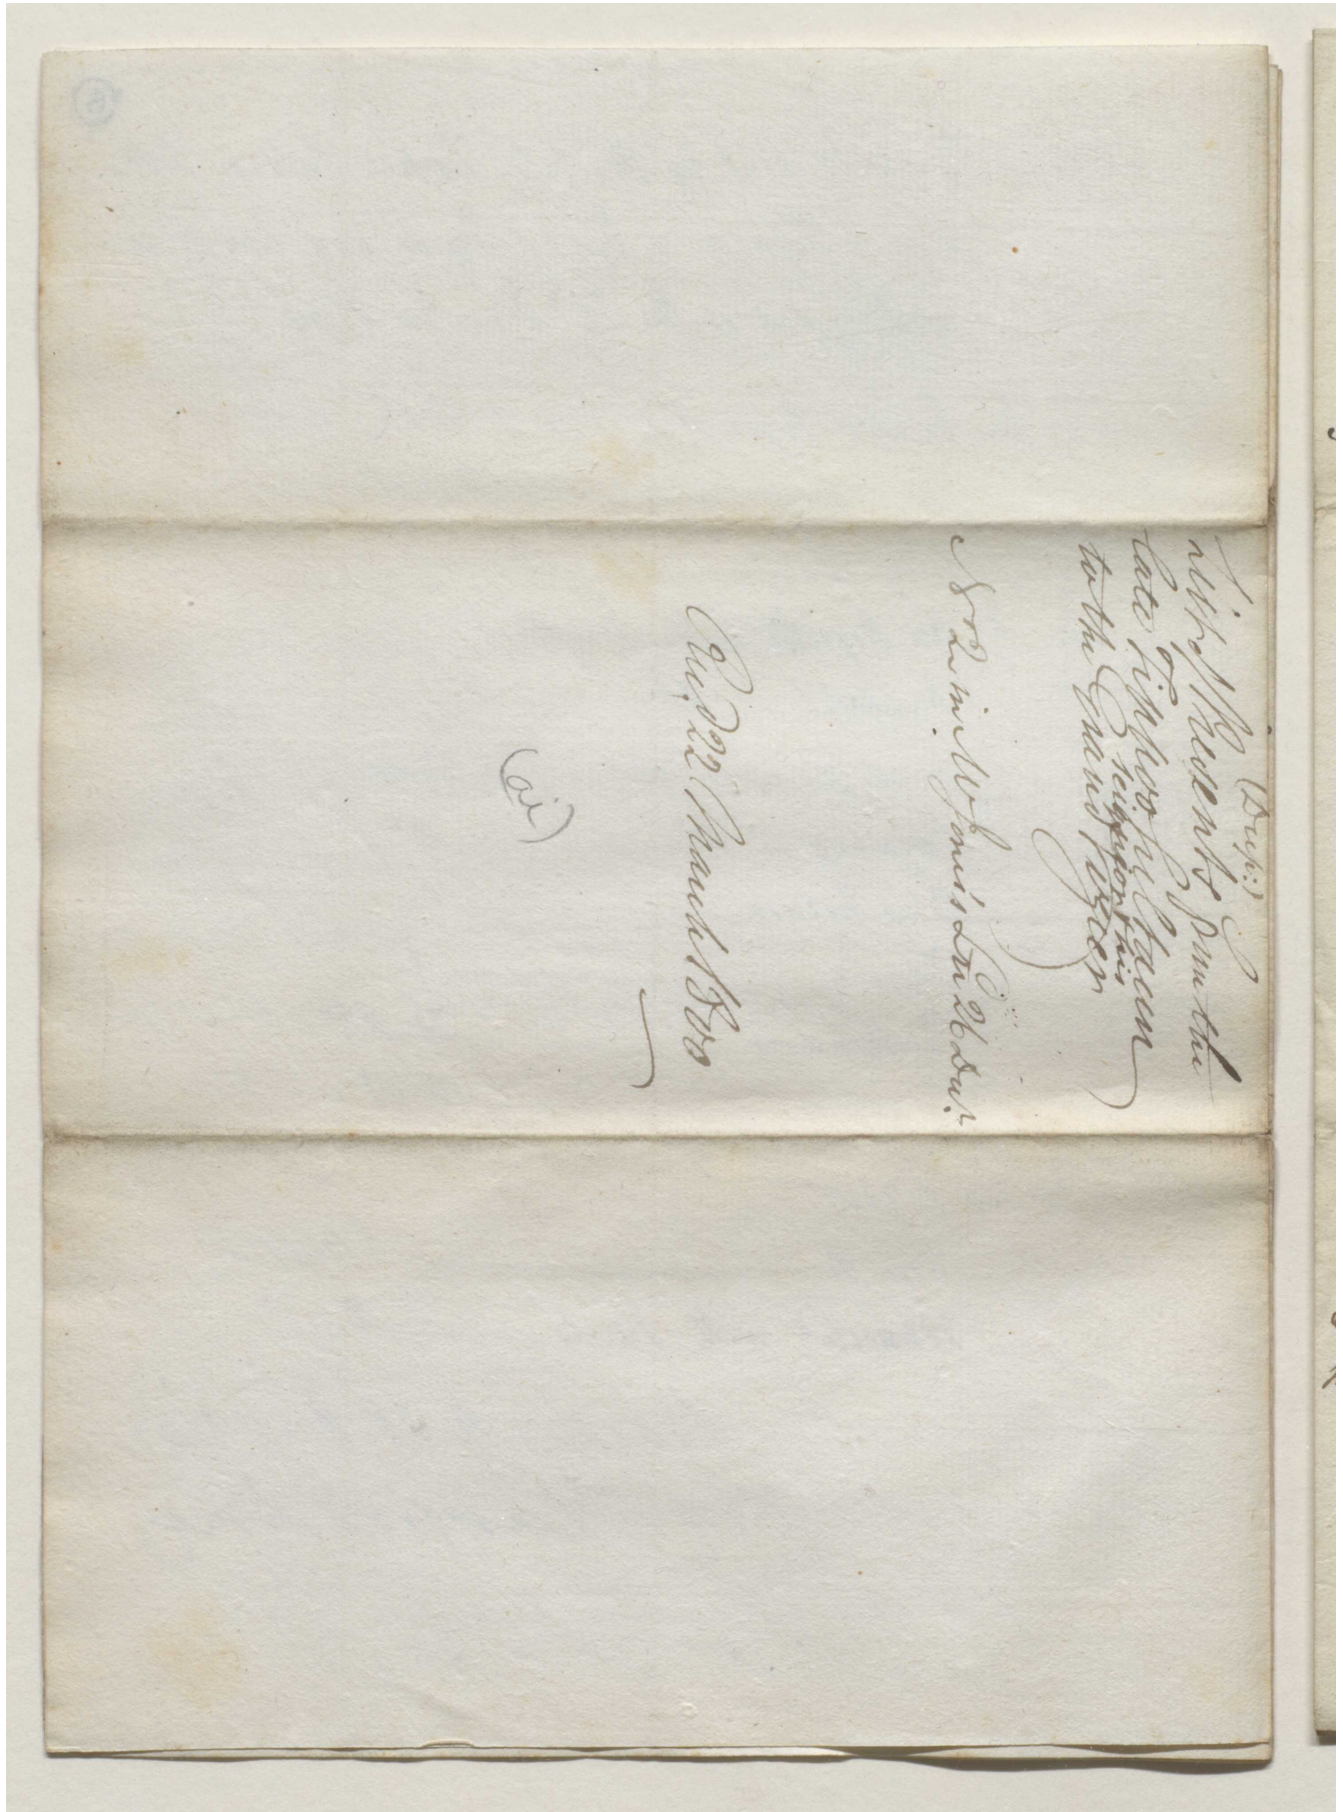 (Dup:)
List of Presents from the
late Tippoo Sultaun
to the Grand Seignior & his
Vizier
No 2 in Mr Jones's Lre 26 Decr:
Recd 22 March 1800